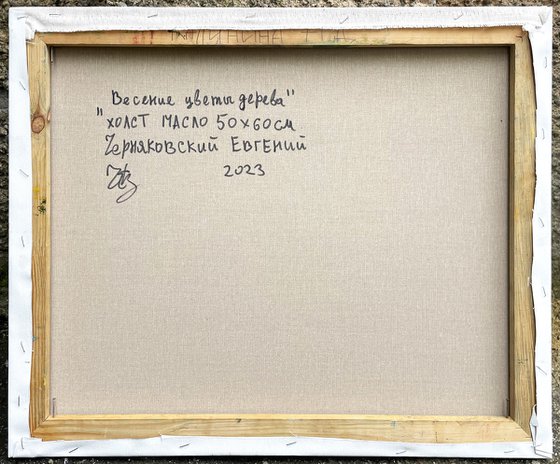 "Весение цветы дерева"
холст масло 50х60см
Черняковский Евгений
2023